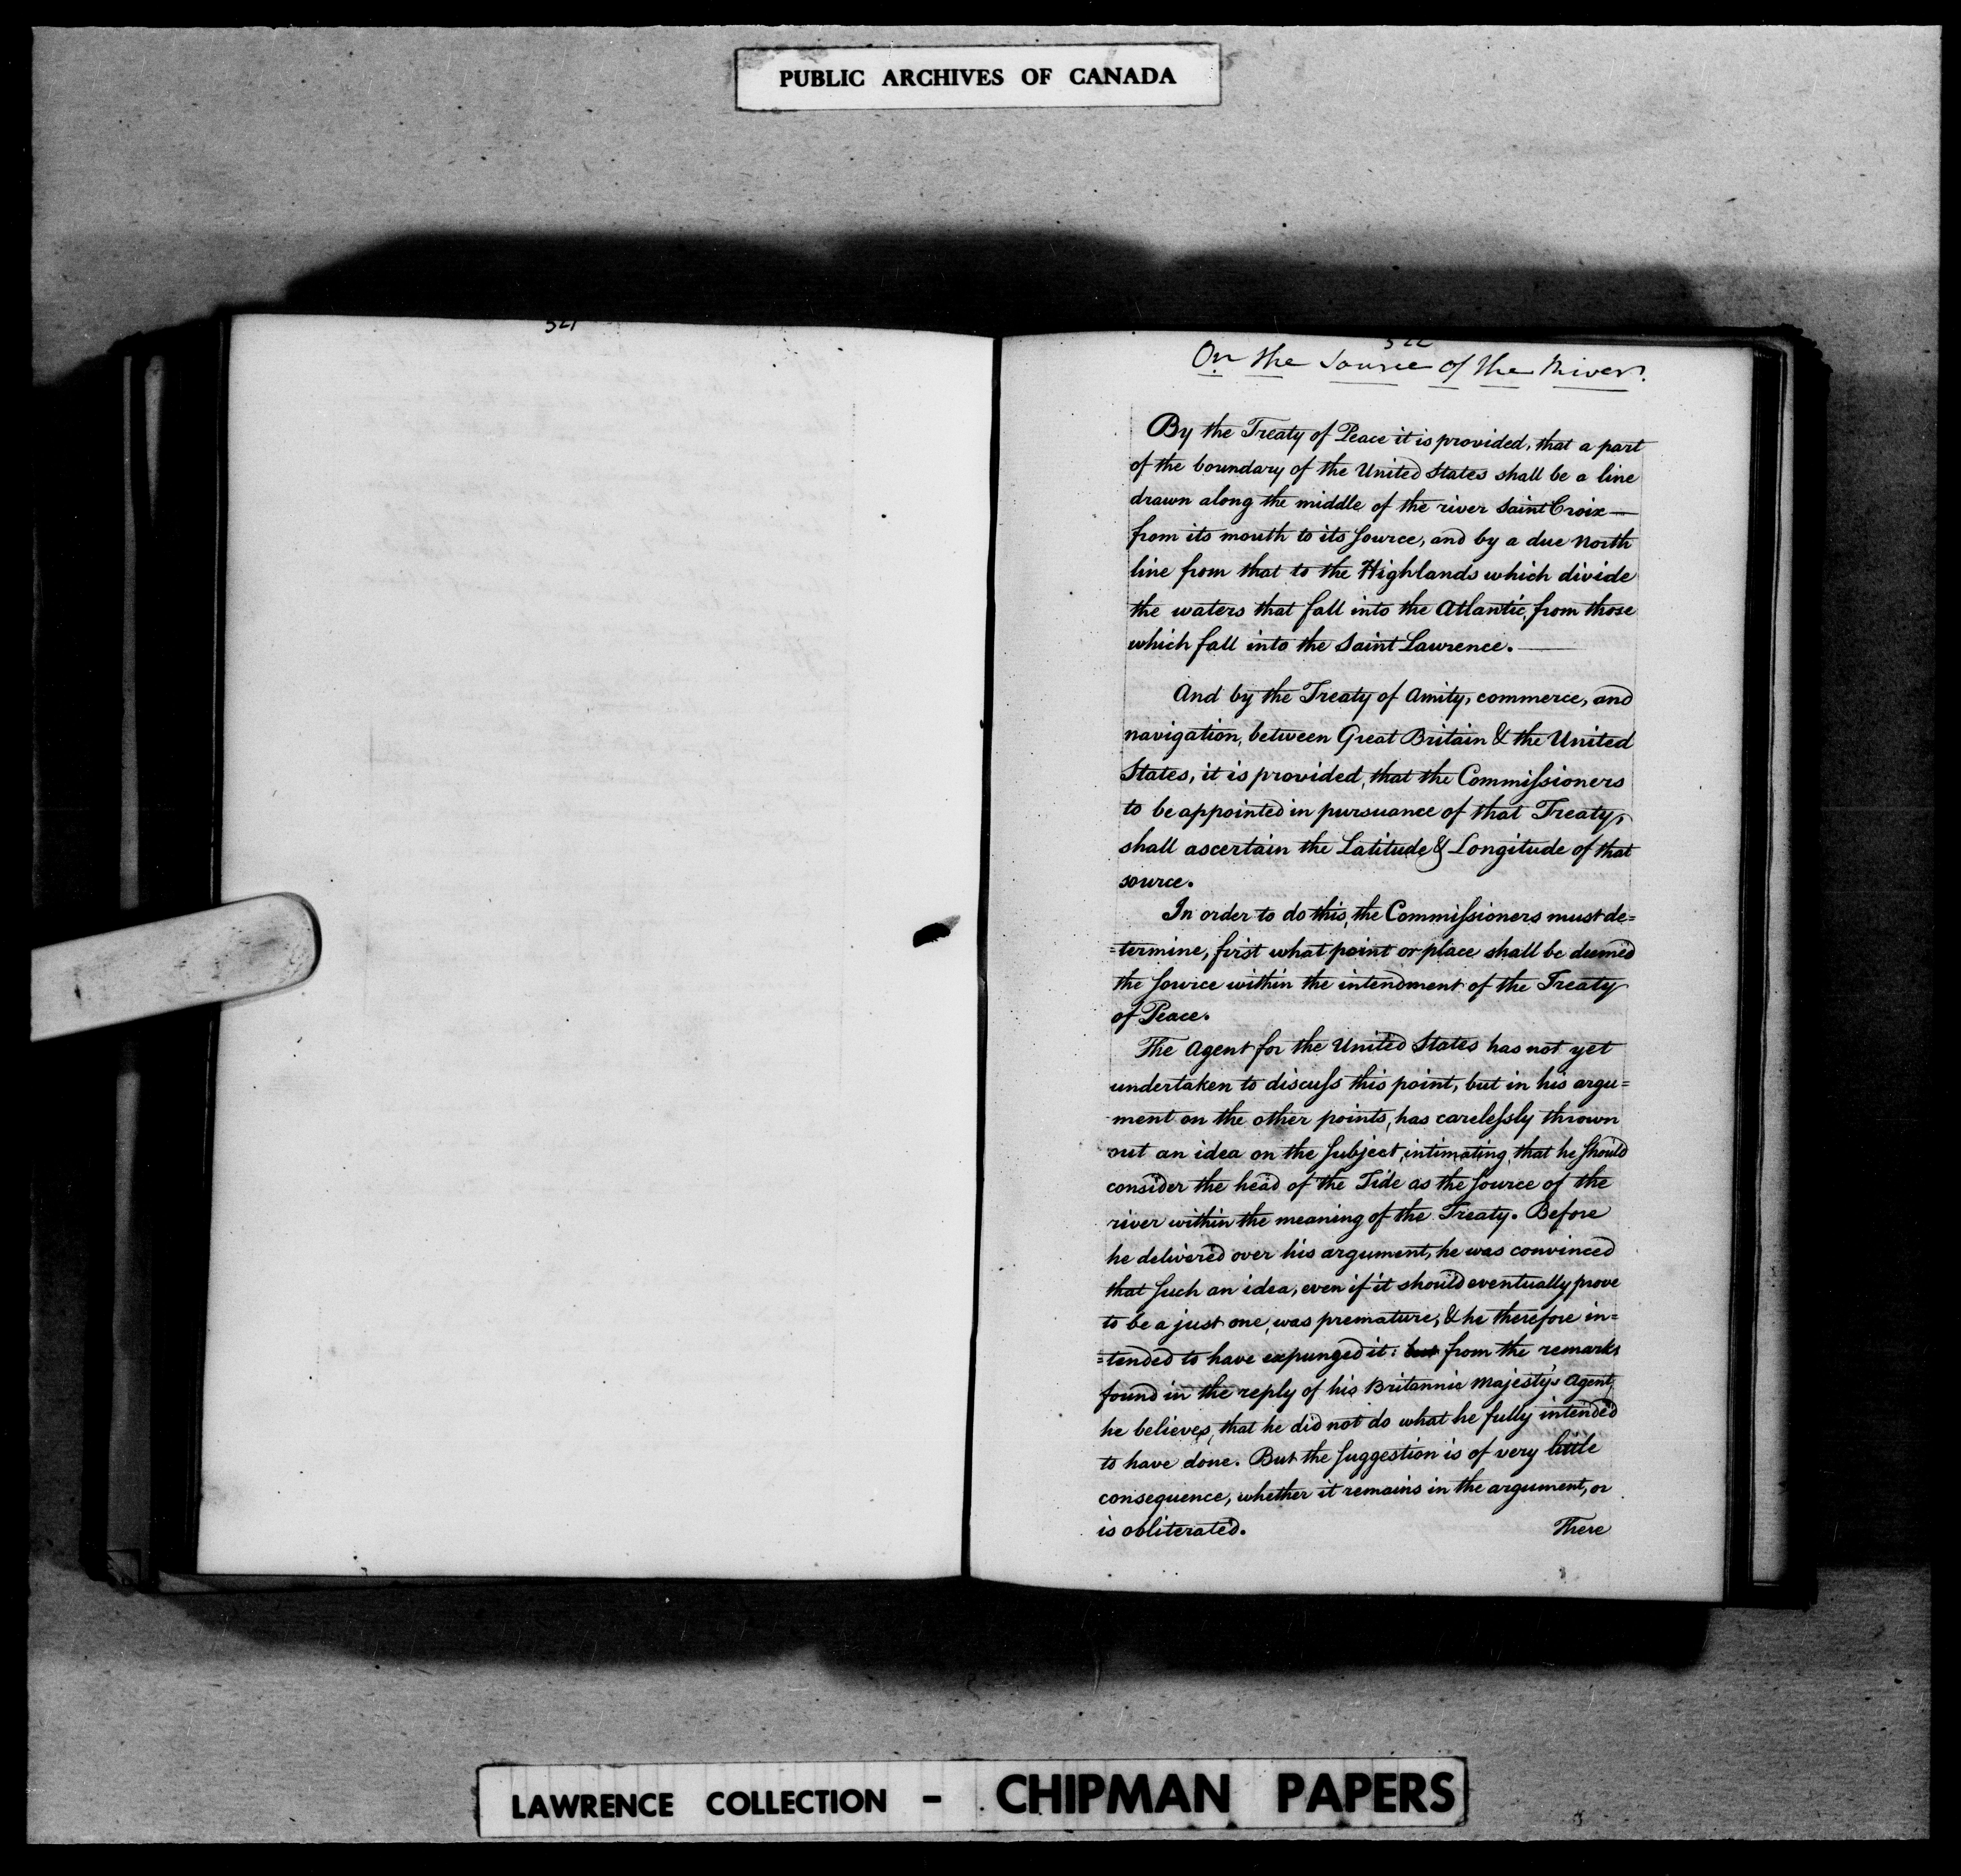 PUBLIC ARCHIVES OF CANADA
521
522
On the Source of the River.
By the Treaty of Peace it is provided, that a part
of the boundary of the United States shall be a line
drawn along the middle of the river Saint Croix —
from its mouth to its source, and by a due North
line from that to the Highlands which divide
the waters that fall into the Atlantic, from those
which fall into the Saint Lawrence. —
And by the Treaty of Amity, commerce, and
navigation, between Great Britain & the United
States, it is provided, that the Commissioners
to be appointed in pursuance of that Treaty,
shall ascertain the Latitude & Longitude of that
source.
In order to do this, the Commissioners must de=
=termine, first what point or place shall be deemed
the source within the intendment of the Treaty
of Peace.
The Agent for the United States has not yet
undertaken to discuss this point, but in his argu=
-ment on the other points, has carelessly thrown
out an idea on the subject, intimating, that he should
consider the head of the Tide as the source of the
river within the meaning of the Treaty. Before
he delivered over his argument, he was convinced
that such an idea, even if it should eventually prove
to be a just one, was premature, & he therefore in=
=tended to have expunged it: but from the remarks
found in the reply of his Britannic Majesty's Agent,
he believes, that he did not do what he fully intended
to have done. But the suggestion is of very little
consequence, whether it remains in the argument, or
is obliterated. There
LAWRENCE COLLECTION - CHIPMAN PAPERS